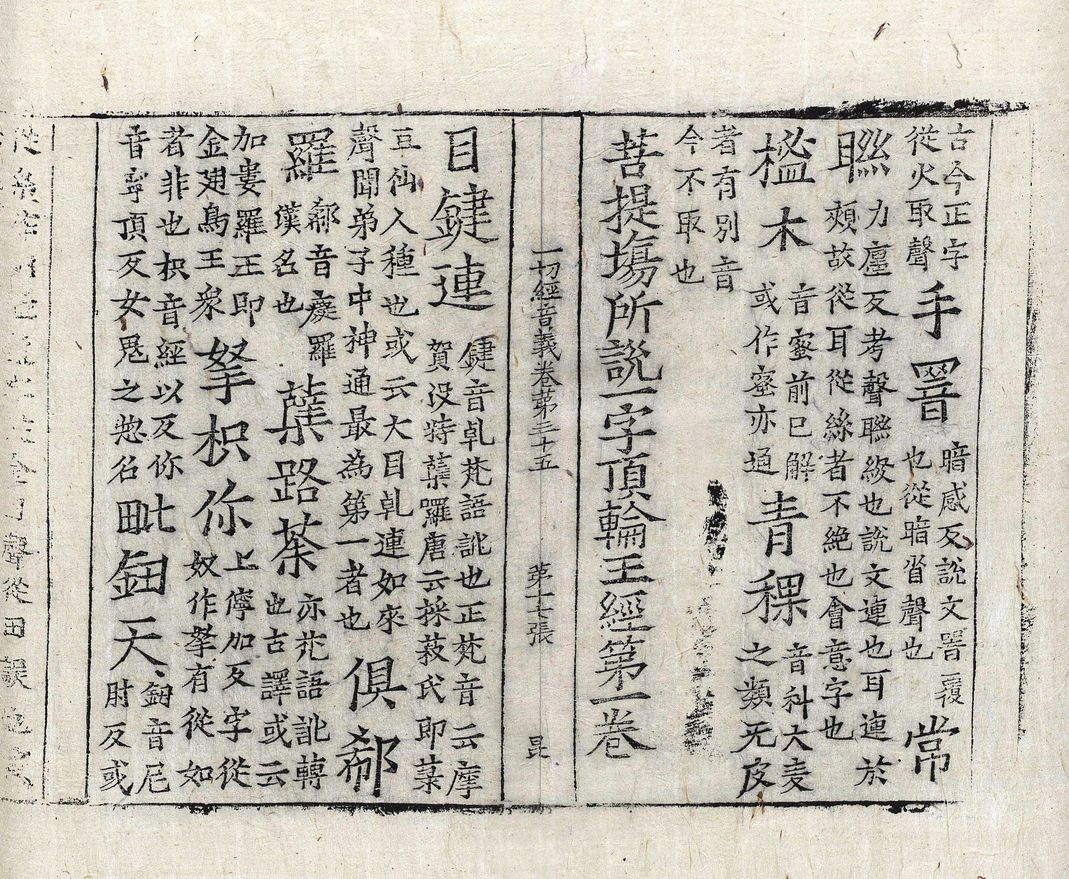 古今正字從火取聲手罯暗感反說文罯覆也從暗省聲也常
聮力廛反考聲聮綴也說文連也耳連於頰故從耳從絲者不絕也會意字也
榓木音蜜前已解或作蜜亦通青稞音科大麦之類无皮
者有別音今不取也
菩提場所說一字頂輪王經第一卷
一切經音義卷第三十五 第十七張 昆
目鍵連鍵音乹梵語訛也正梵音云摩賀没特蘖囉唐云採菽氏即菉
豆仙人種也或云大目乹連如來聲聞弟子中神通最為第一者也俱郗
羅郗音癡羅漢名也蘖路荼亦梵語訛轉也古譯或云
加婁羅王即金翅鳥王衆拏枳你上儜加反字從奴作拏有從如
者非也枳音經以反你音寧頂反女鬼之惣名毗鈕天鈕音尼肘反或